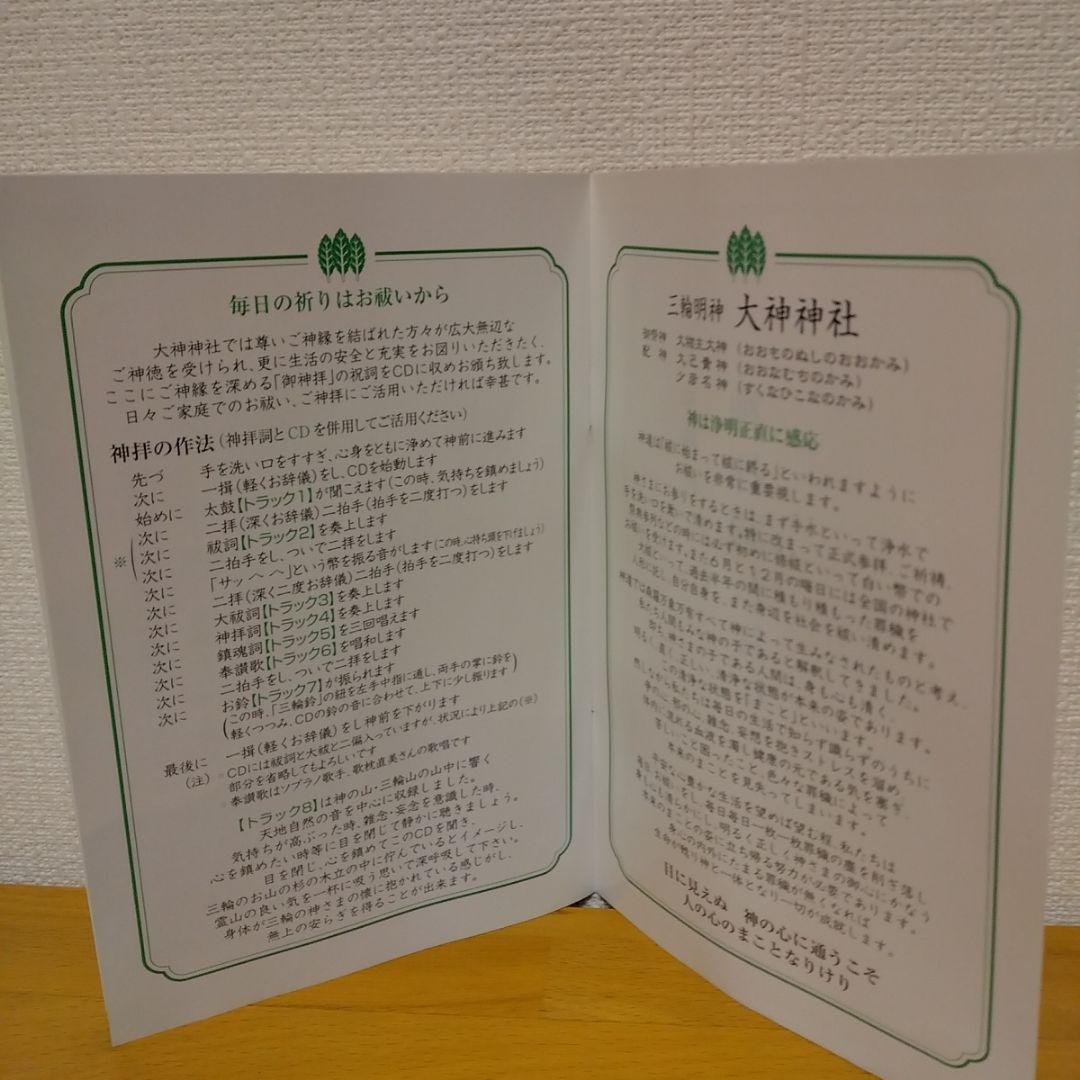 毎日の祈りはお祓いから
大神神社では尊いご神縁を結ばれた方々が広大無辺な
ご神徳を受けられ、更に生活の安全と充実をお図りいただきたく、
ここにご神縁を深める「御神拝」の祝詞をCDに収めお頒ち致します。
日々ご家庭でのお祓い、ご神拝にご活用いただければ幸甚です。
神拝の作法(神拝詞とCDを併用してご活用ください)
先づ 手を洗い口をすすぎ、心身をともに浄めて神前に進みます
次に 一揖(軽くお辞儀)をし、CDを始動します
始めに 太鼓【トラック1】が聞こえます(この時、気持ちを鎮めましょう)
次に 二拝(深くお辞儀)二拍手(拍手を二度打つ)をします
※ 次に 祓詞【トラック2】を奏上します
次に 二拍手をし、ついで二拝をします
次に 「サッ へ へ」という幣を振る音がします(この時心持ち頭を下げましょう)
次に 二拝(深く二度お辞儀)二拍手(拍手を二度打つ)をします
次に 大祓詞【トラック3】を奏上します
次に 神拝詞【トラック4】を奏上します
次に 鎮魂詞【トラック5】を三回唱えます
次に 奉讃歌【トラック6】を唱和します
次に 二拍手をし、ついで二拝をします
次に お鈴【トラック7】が振られます
(この時、「三輪鈴」の紐を左手中指に通し、両手の掌に鈴を
軽くつつみ、CDの鈴の音に合わせて、上下に少し振ります)
最後に 一揖(軽くお辞儀)をし神前を下がります
(注) ◦CDには祓詞と大祓と二偏入っていますが、状況により上記の(※)
部分を省略してもよろしいです
◦奉讃歌はソプラノ歌手、歌枕直美さんの歌唱です
【トラック8】は神の山・三輪山の山中に響く
天地自然の音を中心に収録しました。
気持ちが高ぶった時、雑念・妄念を意識した時、
心を鎮めたい時等に目を閉じて静かに聴きましょう。
目を閉じ、心を鎮めてこのCDを聞き、
三輪のお山の杉の木立の中に佇んでいるとイメージし、
霊山の良い気を一杯に吸う思いで深呼吸して下さい。
身体が三輪の神さまの懐に抱かれている感じがし、
無上の安らぎを得ることが出来ます。
三輪明神 大神神社
御祭神 大物主大神 (おおものぬしのおおかみ)
配神 大己貴神 (おおなむちのかみ)
少彦名神 (すくなひこなのかみ)
神は浄明正直に感応
神道は「祓に始まって祓に終る」といわれますように
お祓いを非常に重要視します。
神さまにお参りをするときは、まず手水といって浄水で
手を洗い口を漱いで清めます。特に改まって正式参拝、ご祈祷、
祭典参列などの時には必ず初めに修祓といって白い幣での
お祓いを受けます。また6月と12月の晦日には全国の神社で
大祓と、過去半年の間に積もり積もった罪穢を
人形に託し、自分自身を、また身辺を社会を祓い清めます。
神道では森羅万象万有すべて神によって生みなされたものと考え、
私たち人間もみな神の子であると解釈してきました。
即ち、神さまの子である人間は、身も心も清く、
明るく、直く正しい、清浄な状態が本来の姿であります。
この清浄な状態を「まこと」といいます。
然しながら私たちは毎日の生活で知らず識らずのうちに
身の部に、雑念、妄想を抱きストレスを溜め、
体内に流れる血液を濁し健康の元である気を塞ぎ、
苦しいこと困ったこと、色々な罪穢によって
本来のまことを見失ってしまいます。
平安な心豊かな生活を望めば望む程、私たちは
毎日お祓いをし、毎日毎日一枚一枚罪穢の塵を削ぎ落し、
身も心も清らかにし、明るく正しく神さまの御心にかなう
本来のまことの姿に立ち帰る努力が必要であります。
身心の内外にたまる罪穢が無くなれば
生命が甦り神と一体となり一切が成就します。
目に見えぬ 神の心に通うこそ
人の心のまことなりけり